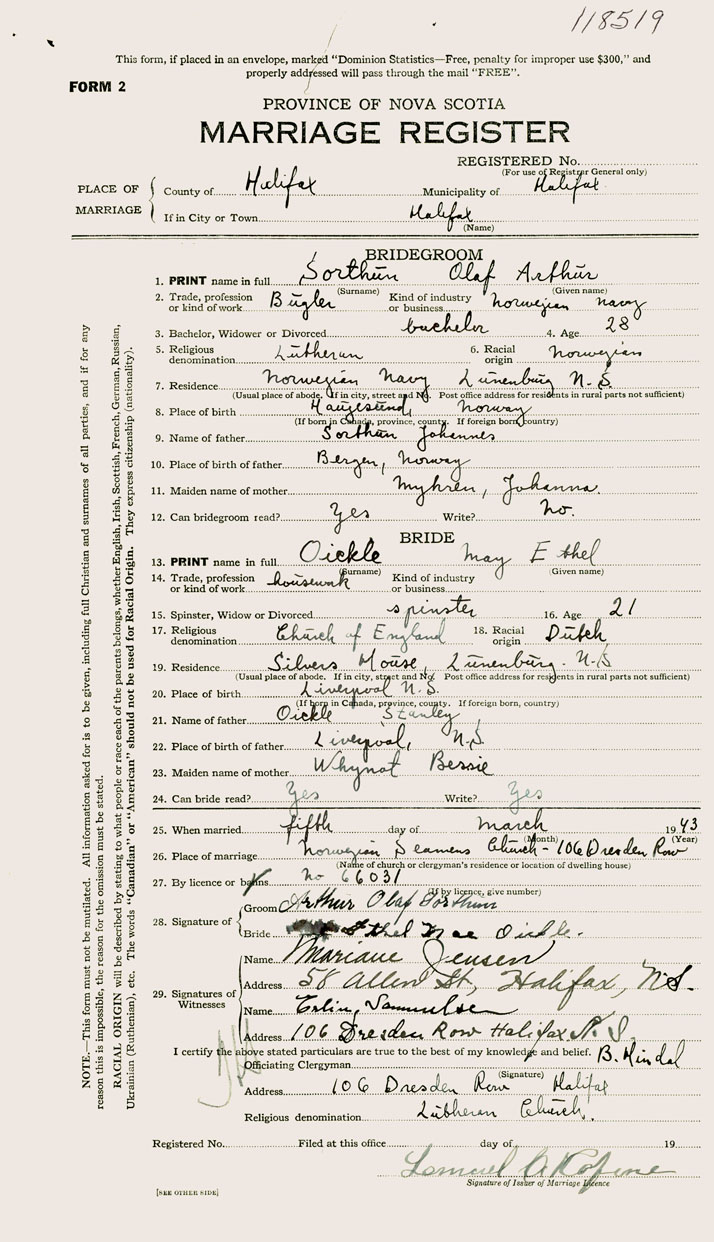 118519
This form, if placed in an envelope, marked "Dominion Statistics—Free, penalty for improper use $300," and
properly addressed will pass through the mail "FREE".
FORM 2
PROVINCE OF NOVA SCOTIA
MARRIAGE REGISTER
REGISTERED No.
(For use of Registrar General only)
PLACE OF MARRIAGE
County of Halifax Municipality of Halifax
If in City or Town Halifax
(Name)
BRIDEGROOM
1. PRINT name in full Sorthun Olaf Arthur
(Surname) (Given name)
2. Trade, profession or kind of work Bugler Kind of industry or business Norwegian Navy
3. Bachelor, Widower or Divorced bachelor 4. Age 28
5. Religious denomination Lutheran 6. Racial origin Norwegian
7. Residence Norwegian Navy Lunenburg N.S.
(Usual place of abode. If in city, street and No. Post office address for residents in rural parts not sufficient)
8. Place of birth Haugesund, Norway
(If born in Canada, province, county. If foreign born, country)
9. Name of father Sorthun Johannes
10. Place of birth of father Bergen, Norway
11. Maiden name of mother Myhren, Johanna.
12. Can bridegroom read? Yes Write? No.
BRIDE
13. PRINT name in full Oickle May Ethel
(Surname) (Given name)
14. Trade, profession or kind of work housework Kind of industry or business
15. Spinster, Widow or Divorced spinster 16. Age 21
17. Religious denomination Church of England 18. Racial origin Dutch
19. Residence Silvers House, Lunenburg. N.S
(Usual place of abode. If in city, street and No. Post office address for residents in rural parts not sufficient)
20. Place of birth Liverpool N.S.
(If born in Canada, province, county. If foreign born, country)
21. Name of father Oickle Stanley
22. Place of birth of father Liverpool, N.S.
23. Maiden name of mother Whynot Bessie
24. Can bride read? Yes Write? Yes
25. When married fifth day of March 1943
(Month) (Year)
26. Place of marriage Norwegian Seamens Church - 106 Dresden Row
(Name of church or clergyman's residence or location of dwelling house)
27. By licence or banns No 66031
(If by licence, give number)
28. Signature of
Groom Arthur Olaf Sorthun
Bride Ethel Mae Oickle.
29. Signatures of Witnesses
Name Mariane Jensen
Address 58 Allen St, Halifax, N.S.
Name Erling Samuelsen
Address 106 Dresden Row Halifax N.S.
I certify the above stated particulars are true to the best of my knowledge and belief. B. Hindal
Officiating Clergyman
(Signature)
Address 106 Dresden Row Halifax
Religious denomination Lutheran Church.
Registered No. Filed at this office day of 19
Signature of Issuer of Marriage Licence
[SEE OTHER SIDE]
NOTE.—This form must not be mutilated. All information asked for is to be given, including full Christian and surnames of all parties, and if for any
reason this is impossible, the reason for the omission must be stated.
RACIAL ORIGIN will be described by stating to what people or race each of the parents belongs, whether English, Irish, Scottish, French, German, Russian,
Ukrainian (Ruthenian), etc. The words "Canadian" or "American" should not be used for Racial Origin. They express citizenship (nationality).